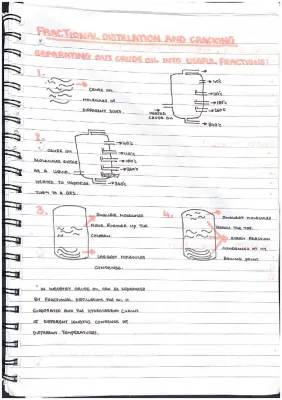 FRACTIONAL DISTILLATION AND CRACKING
SEPARATING OUT CRUDE OIL INTO USEFUL FRACTIONS:
1.
CRUDE OIL
MOLECULES OF
DIFFERENT SIZES.
HEATED
CRUDE OIL
40°C
110°C
180°C
260°C
340°C
2.
CRUDE OIL
MOLECULES ENTER
AS A LIQUID
HEATED TO VAPORISE
TURN TO A GAS.
40°C
110°C
180°C
260°C
340°C
3.
SMALLER MOLECULES
MOVE FURTHER UP THE
COLUMN.
LARGEST MOLECULES
CONDENSE.
4.
SMALLEST MOLECULES
REACH THE TOP.
EVERY FRACTION
CONDENSES AT ITS
BOILING POINT.
IN INDUSTRY CRUDE OIL CAN BE SEPARATED
BY FRACTIONAL DISTILLATION. THE OIL IS
EVAPORATED AND THE HYDROCARBON CHAINS
OF DIFFERENT LENGTHS CONDENSE AT
DIFFERENT TEMPERATURES.